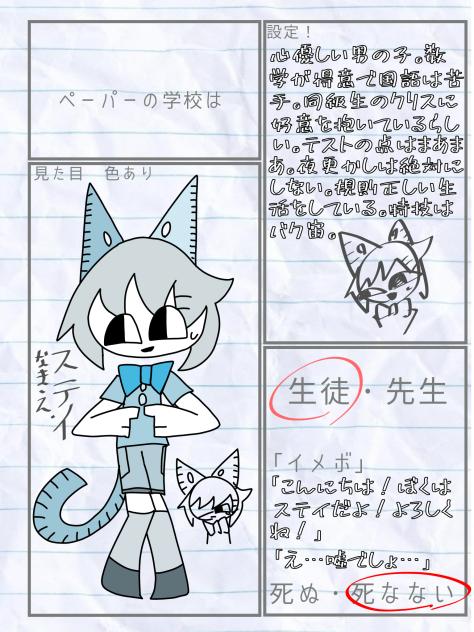 ペーパーの学校は
見た目 色あり
なまえ
ステイ
設定！
心優しい男の子。数
学が得意で国語は苦
手。同級生のクリスに
好意を抱いているらし
い。テストの点はまあま
あ。夜更かしは絶対に
しない。規則正しい生
活をしている。特技は
バク宙。
生徒・先生
「イメボ」
「こんにちは！ぼくは
ステイだよ！よろしく
ね！」
「え…嘘でしょ…」
死ぬ・死なない